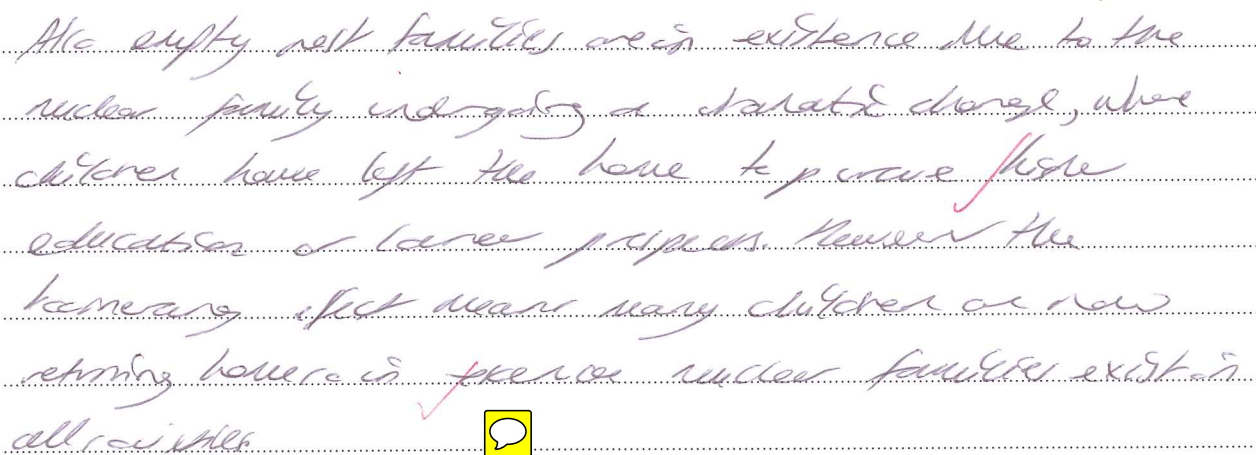 Also empty nest families are in existence due to the
nuclear family undergoing a dramatic change, where
children have left the home to pursue higher
education or career prospects. However the
boomerang effect means many children are now
returning home so in essence nuclear families exist in
all